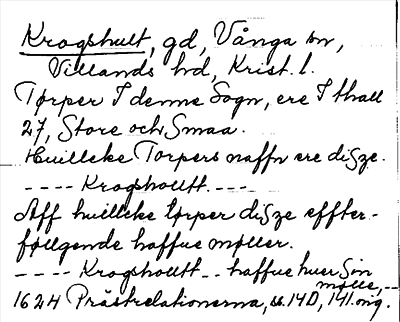 Krogshult, gd, Vånga sn,
Villands hd, Krist. l.
Tørper I denne Sogn, ere I thall
27, Store och Smaa.
Huilleke Torpers naffn ere disze.
---- Krogholltt. ----
Aff huilleke tørper disze effter-
føllgende haffue møller.
---- Krogholltt -- haffue huer Sin
mølle, --
1624 Prästrelationerna, s. 140, 141. orig.